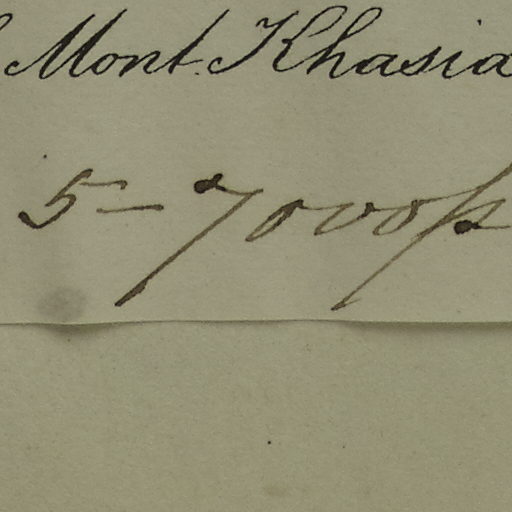 Mont. Khasia
5-7000 p